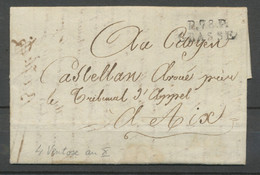 P.78.P.
GRASSE
Au Citoyen
Castellan Avoué près
le Tribunal d'Appel
d'Aix
6
4 Ventose an X